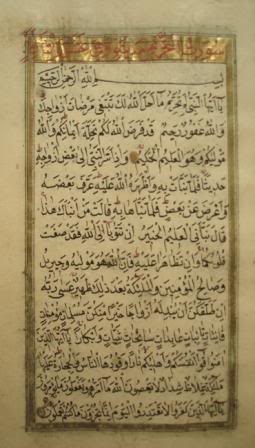 سورة التحريم
بسم الله الرحمن الرحيم
يَا اَيُّهَا النَّبِيُّ لِمَ تُحَرِّمُ مَا اَحَلَّ اللهُ لَكَ تَبْتَغِي مَرْضَاتَ اَزْوَاجِكَ
وَاللهُ غَفُورٌ رَحِيمٌ قَدْ فَرَضَ اللهُ لَكُمْ تَحِلَّةَ اَيْمَانِكُمْ وَاللهُ
مَوْلَيكُمْ وَهُوَ الْعَلِيمُ الْحَكِيمُ وَاِذْ اَسَرَّ النَّبِيُّ اِلَى بَعْضِ اَزْوَاجِهِ
حَدِيثًا فَلَمَّا نَبَّاَتْ بِهِ وَاَظْهَرَهُ اللهُ عَلَيْهِ عَرَّفَ بَعْضَهُ
وَاَعْرَضَ عَنْ بَعْضٍ فَلَمَّا نَبَّاَهَا بِهِ قَالَتْ مَنْ اَنْبَاَكَ هَذَا
قَالَ نَبَّاَنِيَ الْعَلِيمُ الْخَبِيرُ اِنْ تَتُوبَا اِلَى اللهِ فَقَدْ صَغَتْ
قُلُوبُكُمَا وَاِنْ تَظَاهَرَا عَلَيْهِ فَاِنَّ اللهَ هُوَ مَوْلَيهُ وَجِبْرِيلُ
وَصَالِحُ الْمُؤْمِنِينَ وَالْمَلَئِكَةُ بَعْدَ ذَلِكَ ظَهِيرٌ عَسَى رَبُّهُ
اِنْ طَلَّقَكُنَّ اَنْ يُبْدِلَهُ اَزْوَاجًا خَيْرًا مِنْكُنَّ مُسْلِمَاتٍ مُؤْمِنَاتٍ
قَانِتَاتٍ تَائِبَاتٍ عَابِدَاتٍ سَائِحَاتٍ ثَيِّبَاتٍ وَاَبْكَارًا يَا اَيُّهَا الَّذِينَ
اٰمَنُوا قُوا اَنْفُسَكُمْ وَاَهْلِيكُمْ نَارًا وَقُودُهَا النَّاسُ وَالْحِجَارَةُ عَلَيْهَا
مَلَئِكَةٌ غِلَاظٌ شِدَادٌ لَا يَعْصُونَ اللهَ مَا اَمَرَهُمْ وَيَفْعَلُونَ مَا يُؤْمَرُونَ
يَا اَيُّهَا الَّذِينَ كَفَرُوا لَا تَعْتَذِرُوا الْيَوْمَ اِنَّمَا تُجْزَوْنَ مَا كُنْتُمْ تَعْمَلُونَ